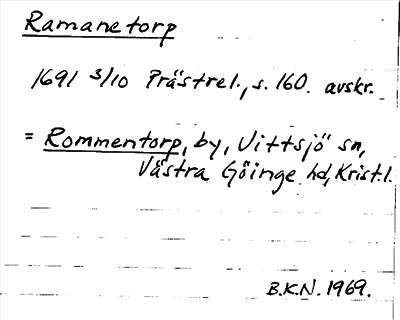 Ramanetorp
1691 3/10 Prästrel., s. 160. avskr.
= Rommentorp, by, Vittsjö sn,
Västra Göinge hd, Krist.l.
B.K.N. 1969.